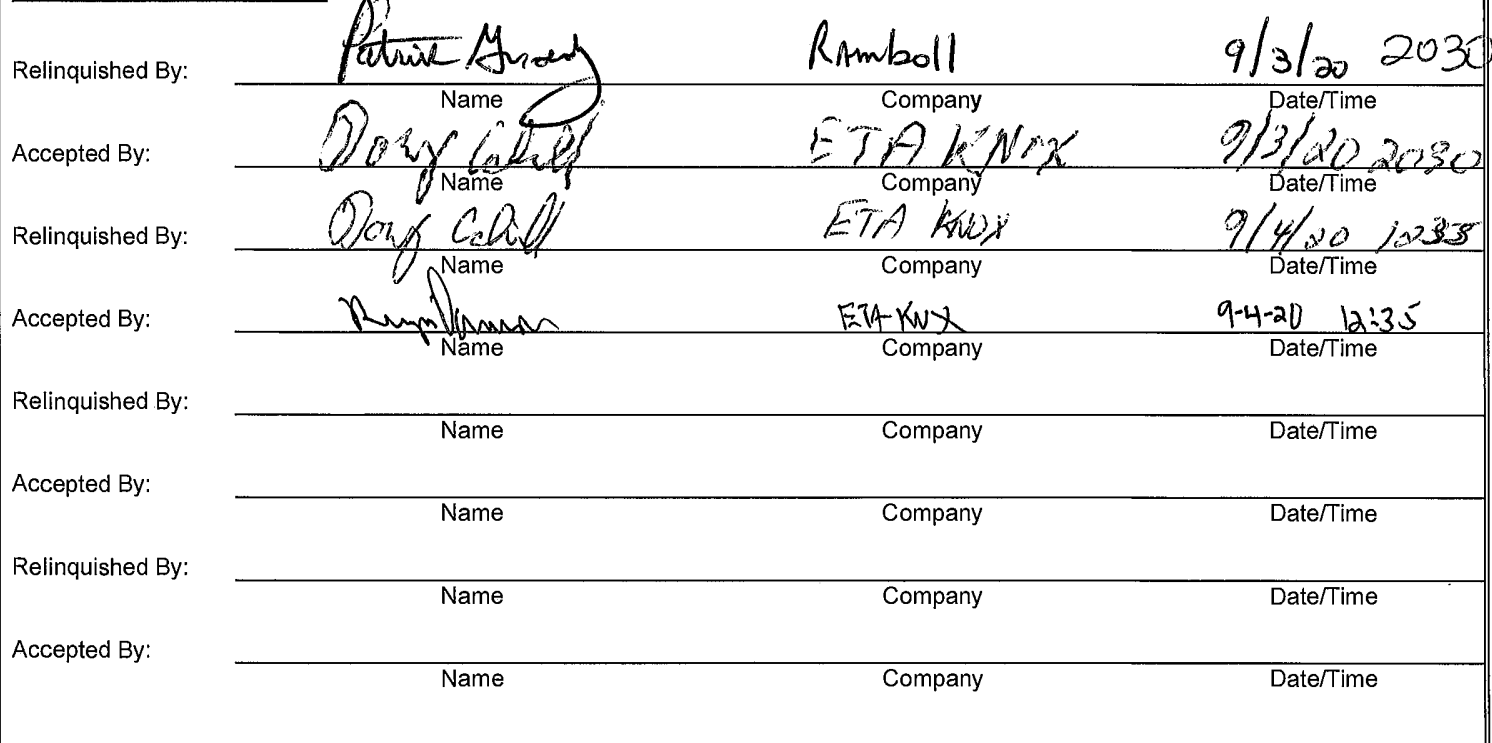 Relinquished By: Patrick Grady Ramboll 9/3/20 2030
Name Company Date/Time
Accepted By: Doug Cahill ETA KNOX 9/3/20 2030
Name Company Date/Time
Relinquished By: Doug Cahill ETA KNOX 9/4/20 1235
Name Company Date/Time
Accepted By: ETA KNX 9-4-20 12:35
Name Company Date/Time
Relinquished By:
Name Company Date/Time
Accepted By:
Name Company Date/Time
Relinquished By:
Name Company Date/Time
Accepted By:
Name Company Date/Time